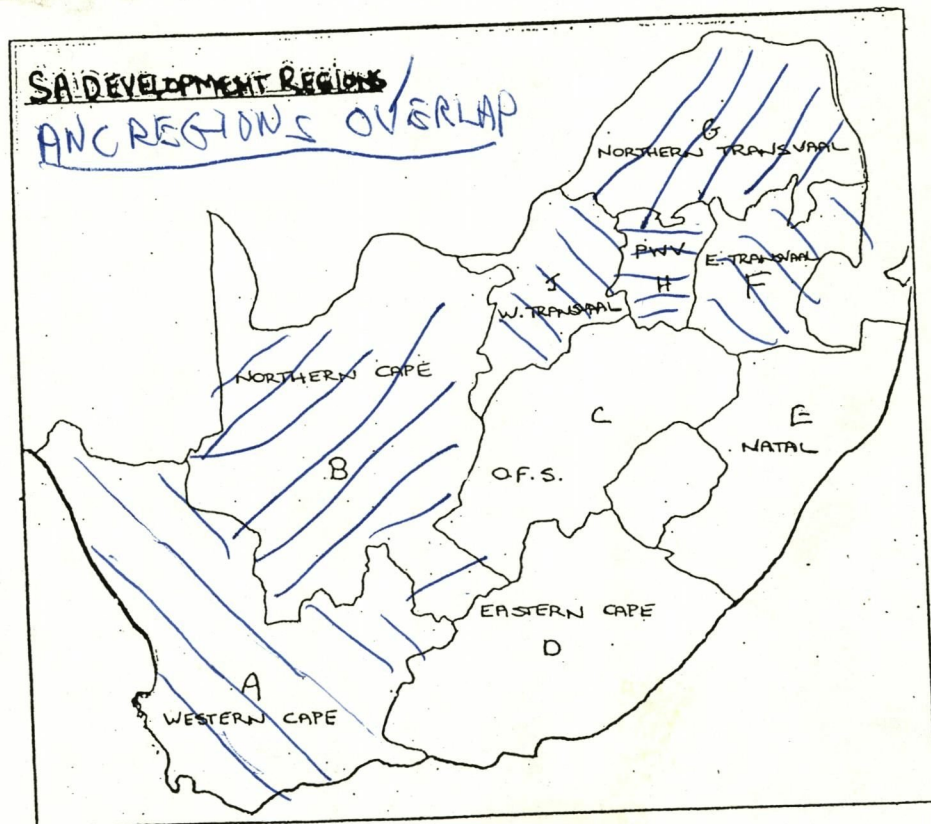 SA DEVELOPMENT REGIONS
ANC REGIONS OVERLAP
G
NORTHERN TRANSVAAL
PWV
H
E. TRANSVAAL
F
J
W. TRANSVAAL
NORTHERN CAPE
B
C
O.F.S.
E
NATAL
EASTERN CAPE
D
A
WESTERN CAPE